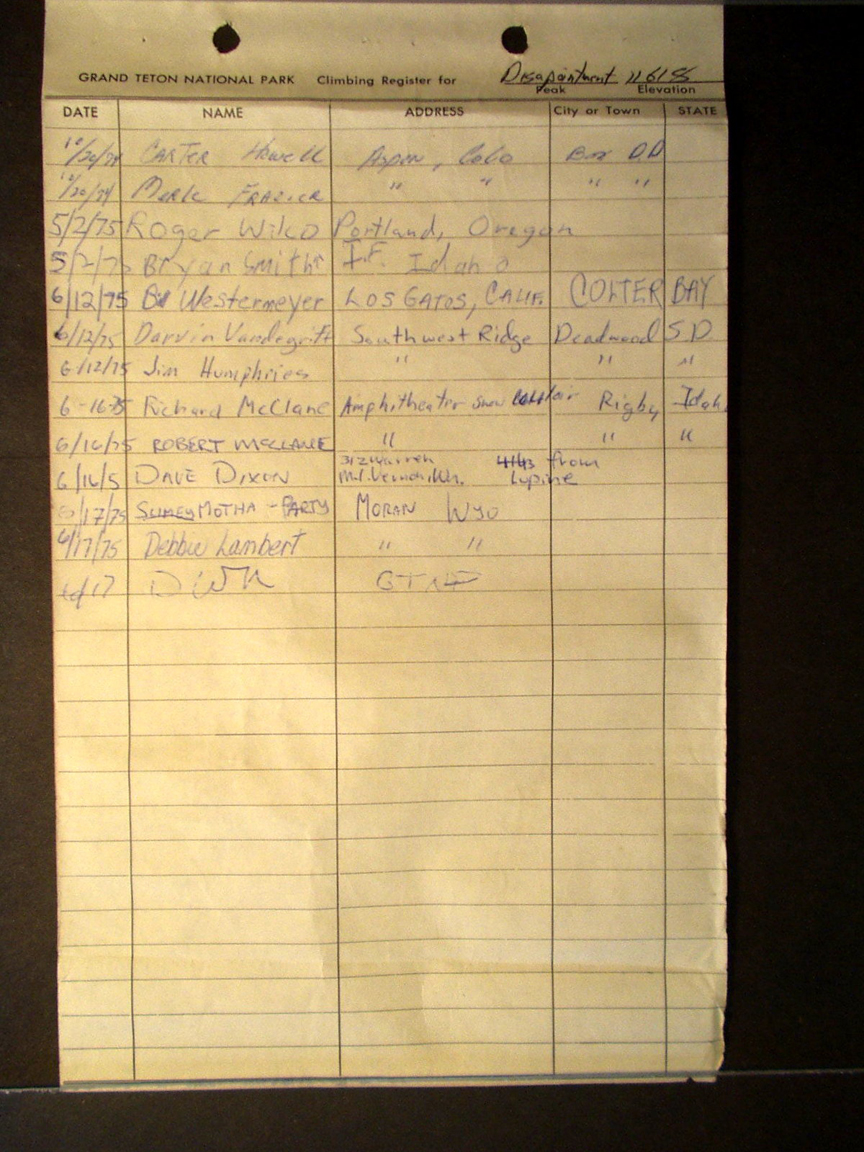 GRAND TETON NATIONAL PARK Climbing Register for Disapointment 11618
Peak Elevation
DATE NAME ADDRESS City or Town STATE
10/20/74 CARTER Howell Aspen, Colo Box DD
10/20/74 Merle FRAZIER " " " "
5/2/75 Roger Wilco Portland, Oregon
5/2/75 Bryan Smith I.F. Idaho
6/12/75 Westermeyer LOS GATOS, CALIF. COLTER BAY
6/12/75 Darvin Vandegrift Southwest Ridge Deadwood S.D.
6/12/75 Jim Humphries " " "
6-16-75 Richard McClane Amphitheater Snow Rigby Idah
6/16/75 ROBERT McCLANE " " "
6/16/5 DAVE DIXON 312 Warren Mt. Vernon, Wn. from Lupine
6/17/75 SLIMEYMOTHA - PARTY MORAN WYO
6/17/75 Debbie Lambert " "
6/17 GTNP